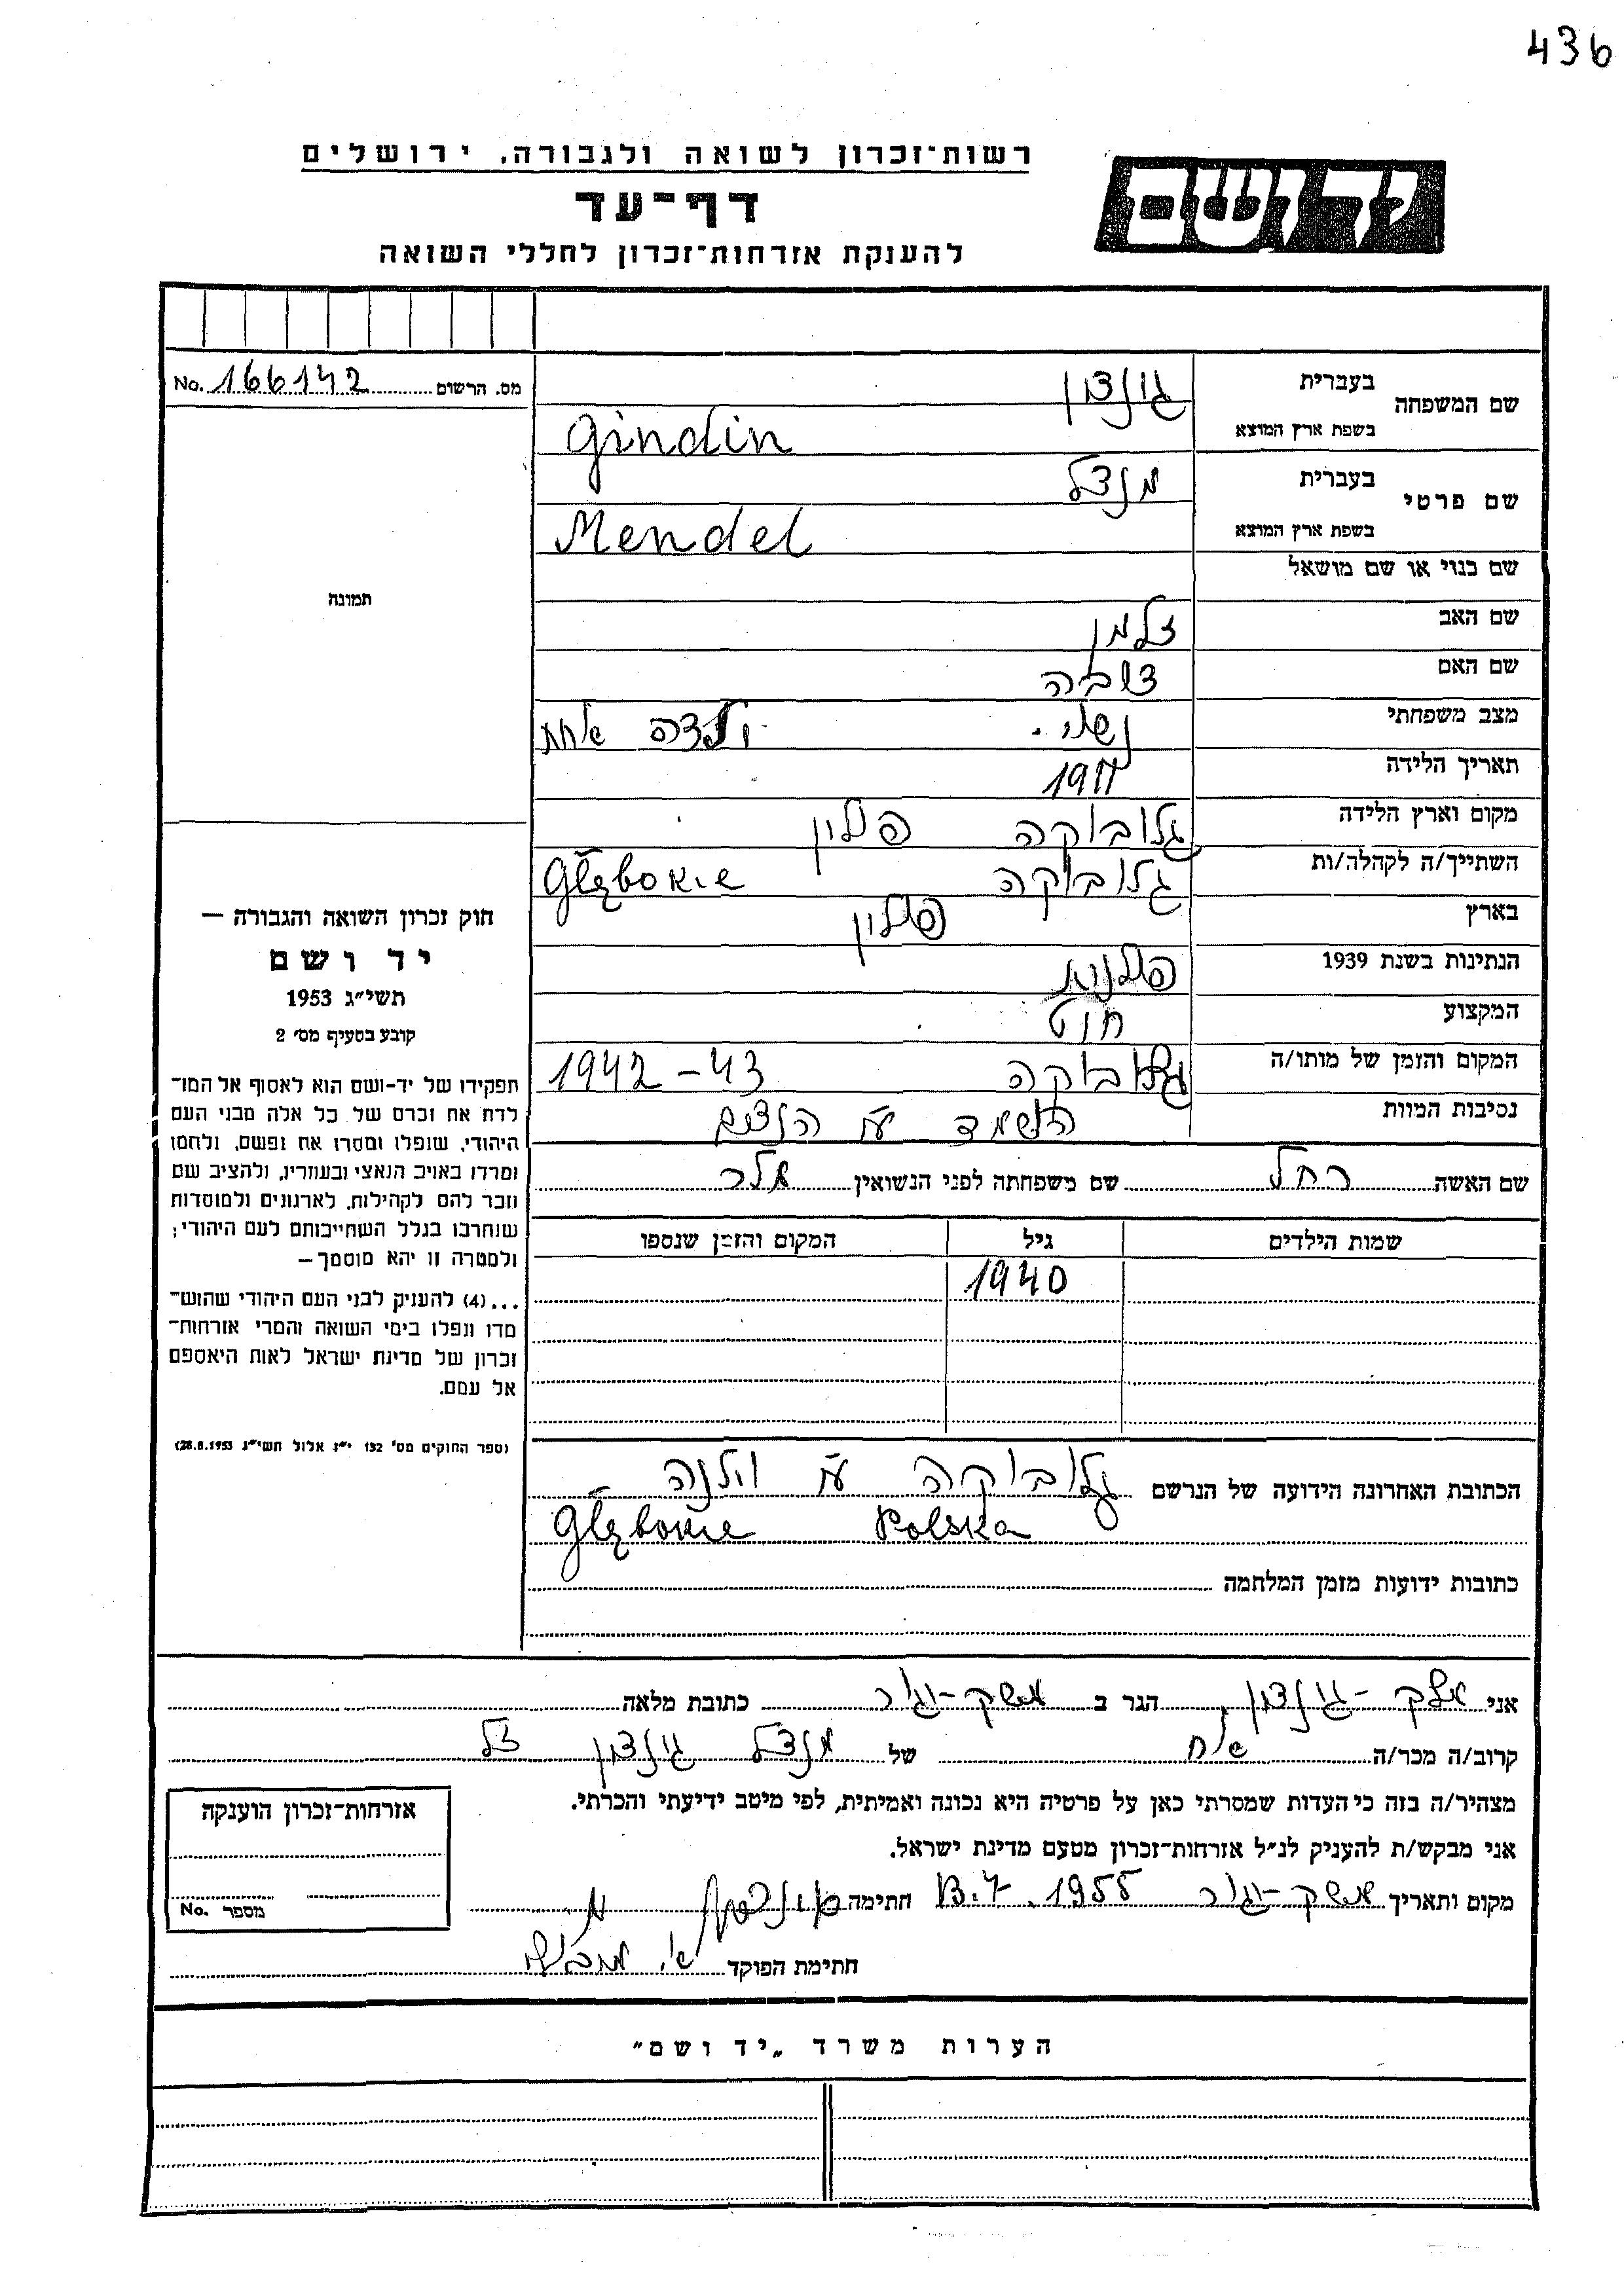 436
רשות־זכרון לשואה ולגבורה, ירושלים
יד ושם
דף־עד
להענקת אזרחות־זכרון לחללי השואה
מס. הרשום 166142 No.
שם המשפחה
בעברית
גינדין
בשפת ארץ המוצא
Gindin
שם פרטי
בעברית
מנדל
בשפת ארץ המוצא
Mendel
שם כנוי או שם מושאל
שם האב
זלמן
שם האם
מצב משפחתי
נשוי.
אחת
תאריך הלידה
1911
מקום וארץ הלידה
גלובוקה פולין
השתייך/ה לקהלה/ות
גלובוקה Głębokie
בארץ
פולין
הנתינות בשנת 1939
פולנית
המקצוע
המקום והזמן של מותו/ה
גלובוקה 1942-43
נסיבות המוות
הושמד
שם האשה רחל שם משפחתה לפני הנשואין
שמות הילדים גיל המקום והזמן שנספו
1940
הכתובת האחרונה הידועה של הנרשם גלובוקה ע״י וילנה
Głębokie Polska
כתובות ידועות מזמן המלחמה
תמונה
חוק זכרון השואה והגבורה —
יד ושם
תשי״ג 1953
קובע בסעיף מס׳ 2
תפקידו של יד-ושם הוא לאסוף אל המו־
לדת את זכרם של כל אלה מבני העם
היהודי, שנפלו ומסרו את נפשם, נלחמו
ומרדו באויב הנאצי ובעוזריו, ולהציב שם
וזכר להם לקהילות, לארגונים ולמוסדות
שנחרבו בגלל השתייכותם לעם היהודי;
ולמטרה זו יהא מוסמך—
...(4) להעניק לבני העם היהודי שהוש־
מדו ונפלו בימי השואה והמרי אזרחות־
זכרון של מדינת ישראל לאות היאספם
אל עמם.
(ספר החוקים מס׳ 132 י״ז אלול תשי״ג 28.8.1953)
אני גינדין הגר ב משק-יגור כתובת מלאה
קרוב/ה מכר/ה אח של מנדל גינדין ז״ל
מצהיר/ה בזה כי העדות שמסרתי כאן על פרטיה היא נכונה ואמיתית, לפי מיטב ידיעתי והכרתי.
אני מבקש/ת להעניק לנ״ל אזרחות־זכרון מטעם מדינת ישראל.
מקום ותאריך משק-יגור 1955 חתימה
חתימת הפוקד
אזרחות־זכרון הוענקה
מספר No.
הערות משרד „יד ושם״